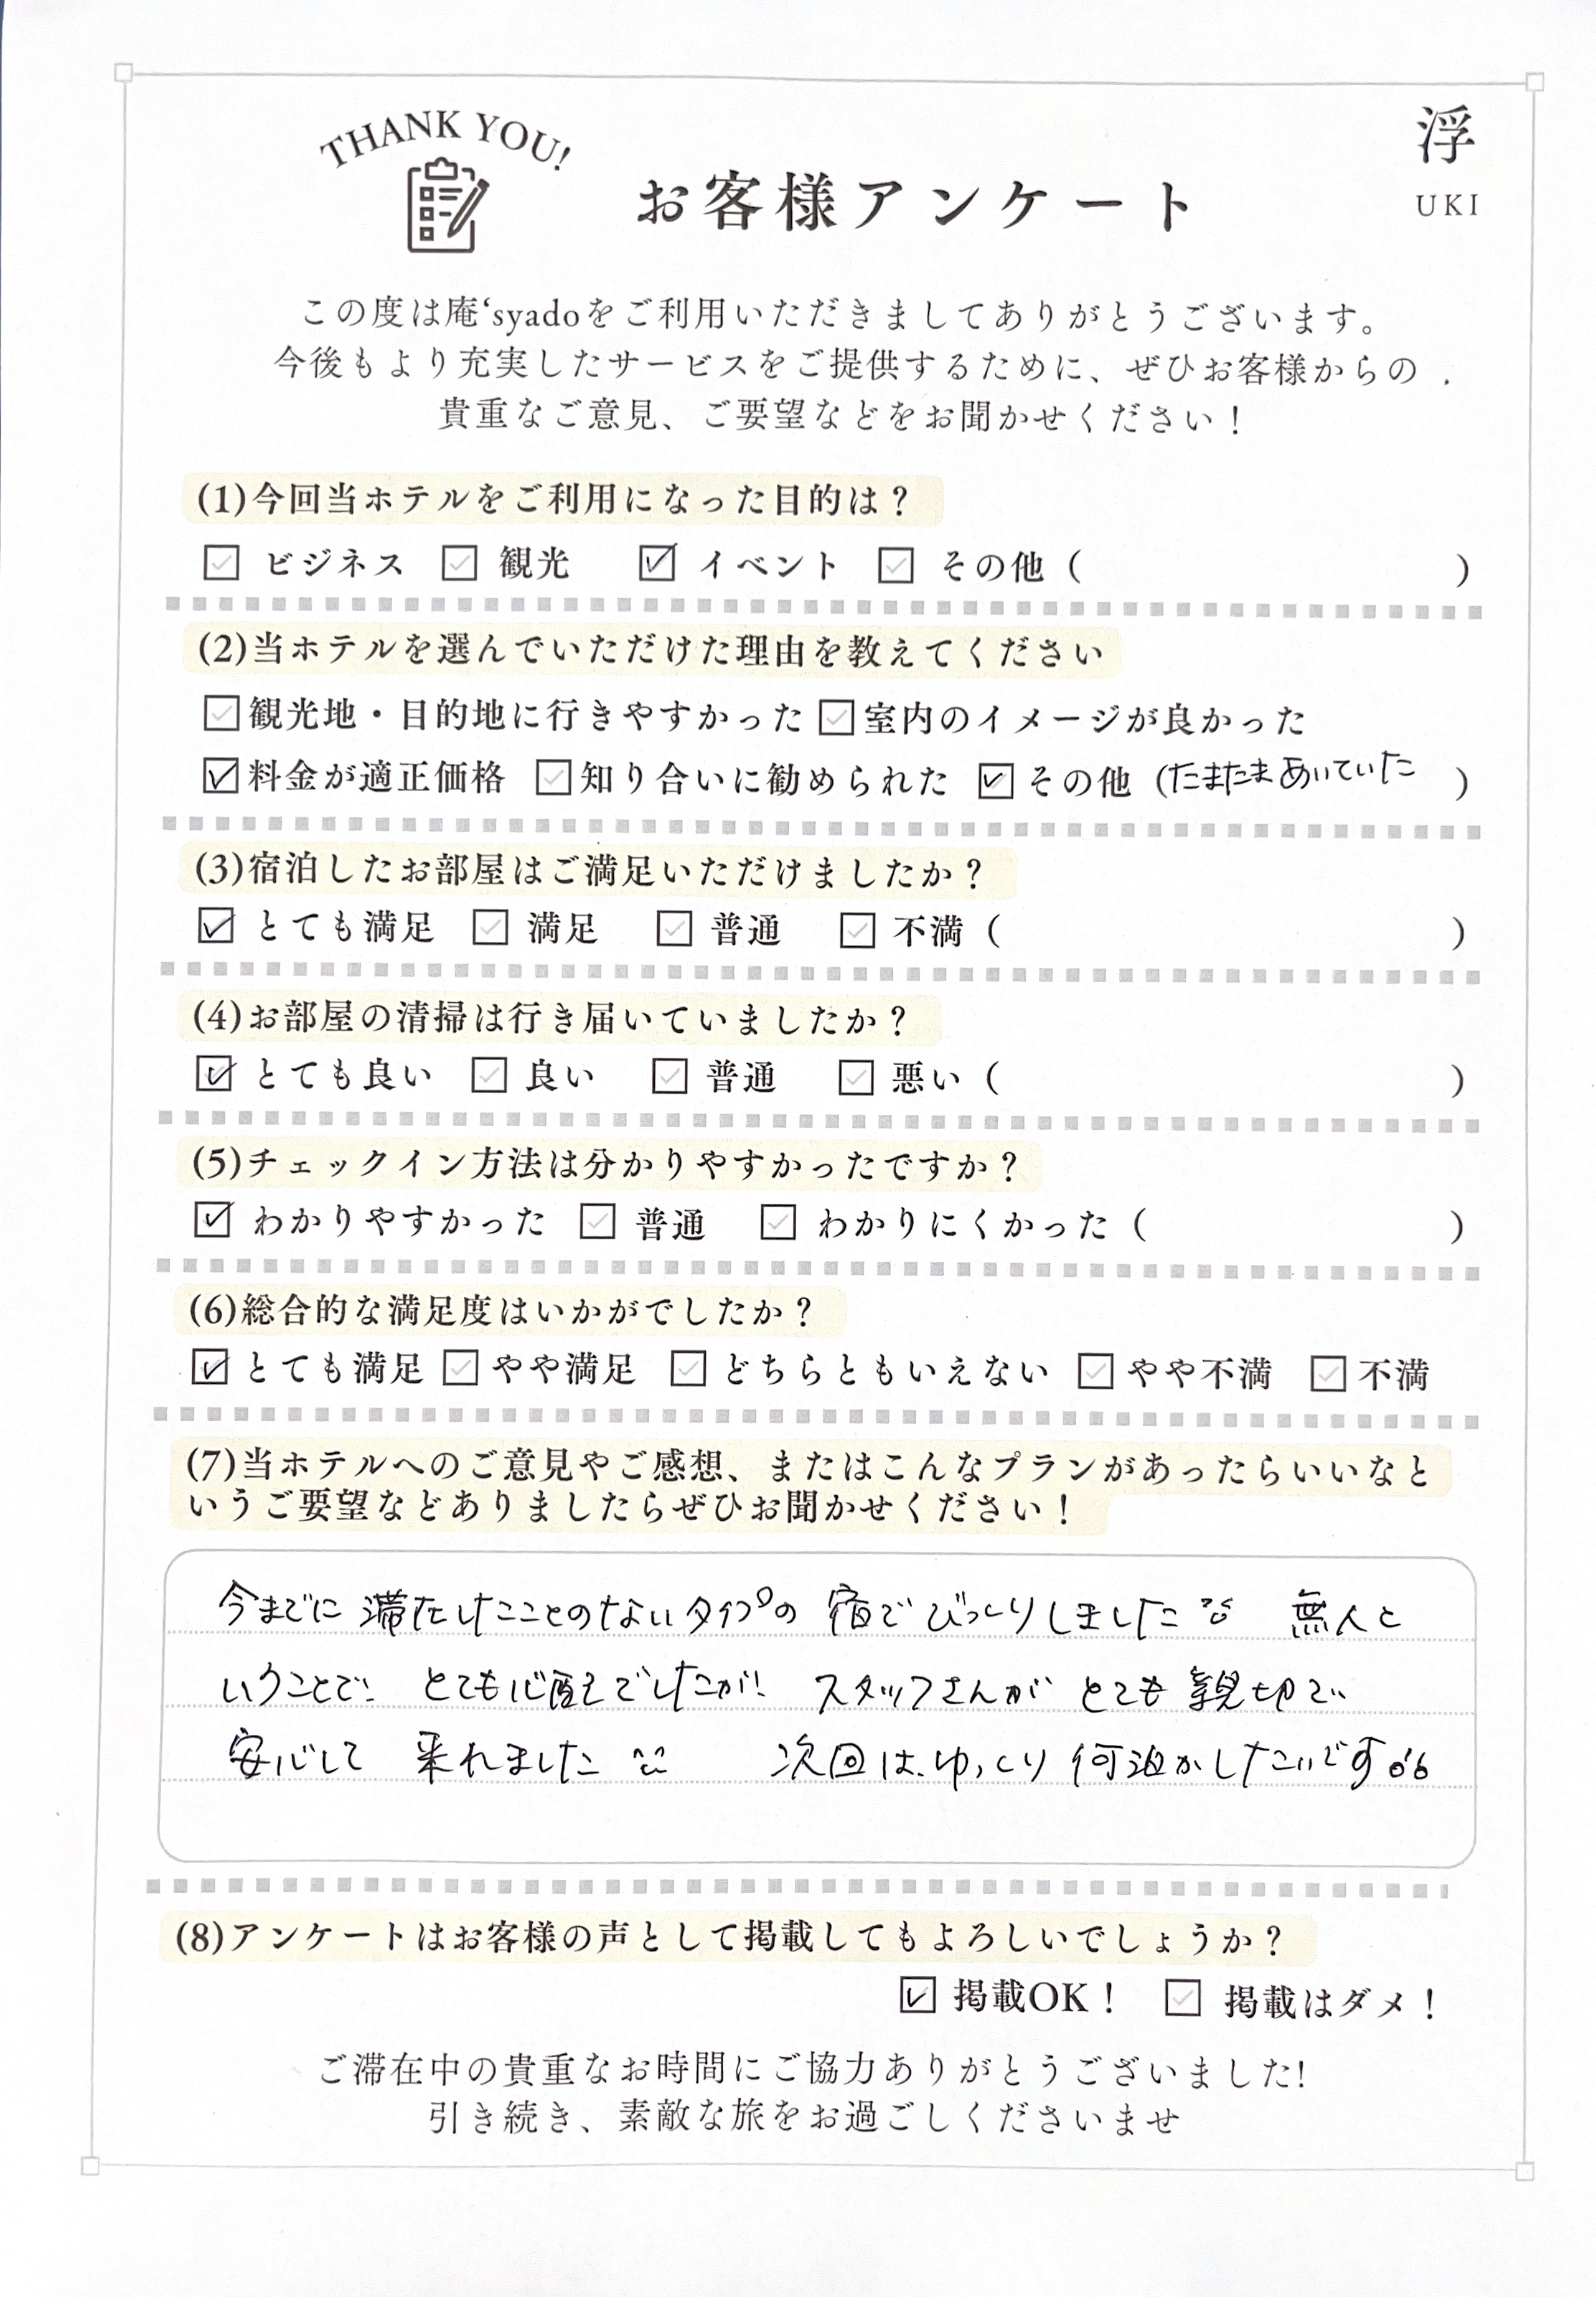 THANK YOU!
お客様アンケート
浮
UKI
この度は庵‘syadoをご利用いただきましてありがとうございます。
今後もより充実したサービスをご提供するために、ぜひお客様からの
貴重なご意見、ご要望などをお聞かせください！
(1)今回当ホテルをご利用になった目的は？
ビジネス 観光 イベント その他（ ）
(2)当ホテルを選んでいただけた理由を教えてください
観光地・目的地に行きやすかった 室内のイメージが良かった
料金が適正価格 知り合いに勧められた その他（たまたまあいていた ）
(3)宿泊したお部屋はご満足いただけましたか？
とても満足 満足 普通 不満（ ）
(4)お部屋の清掃は行き届いていましたか？
とても良い 良い 普通 悪い（ ）
(5)チェックイン方法は分かりやすかったですか？
わかりやすかった 普通 わかりにくかった（ ）
(6)総合的な満足度はいかがでしたか？
とても満足 やや満足 どちらともいえない やや不満 不満
(7)当ホテルへのご意見やご感想、またはこんなプランがあったらいいなと
いうご要望などありましたらぜひお聞かせください！
今までに滞在したことのないタイプの宿でびっくりしました 無人と
いうことで! とても心配でしたが! スタッフさんがとても親切で
安心して 来れました 次回は、ゆっくり何泊かしたいです
(8)アンケートはお客様の声として掲載してもよろしいでしょうか？
掲載OK！ 掲載はダメ！
ご滞在中の貴重なお時間にご協力ありがとうございました!
引き続き、素敵な旅をお過ごしくださいませ